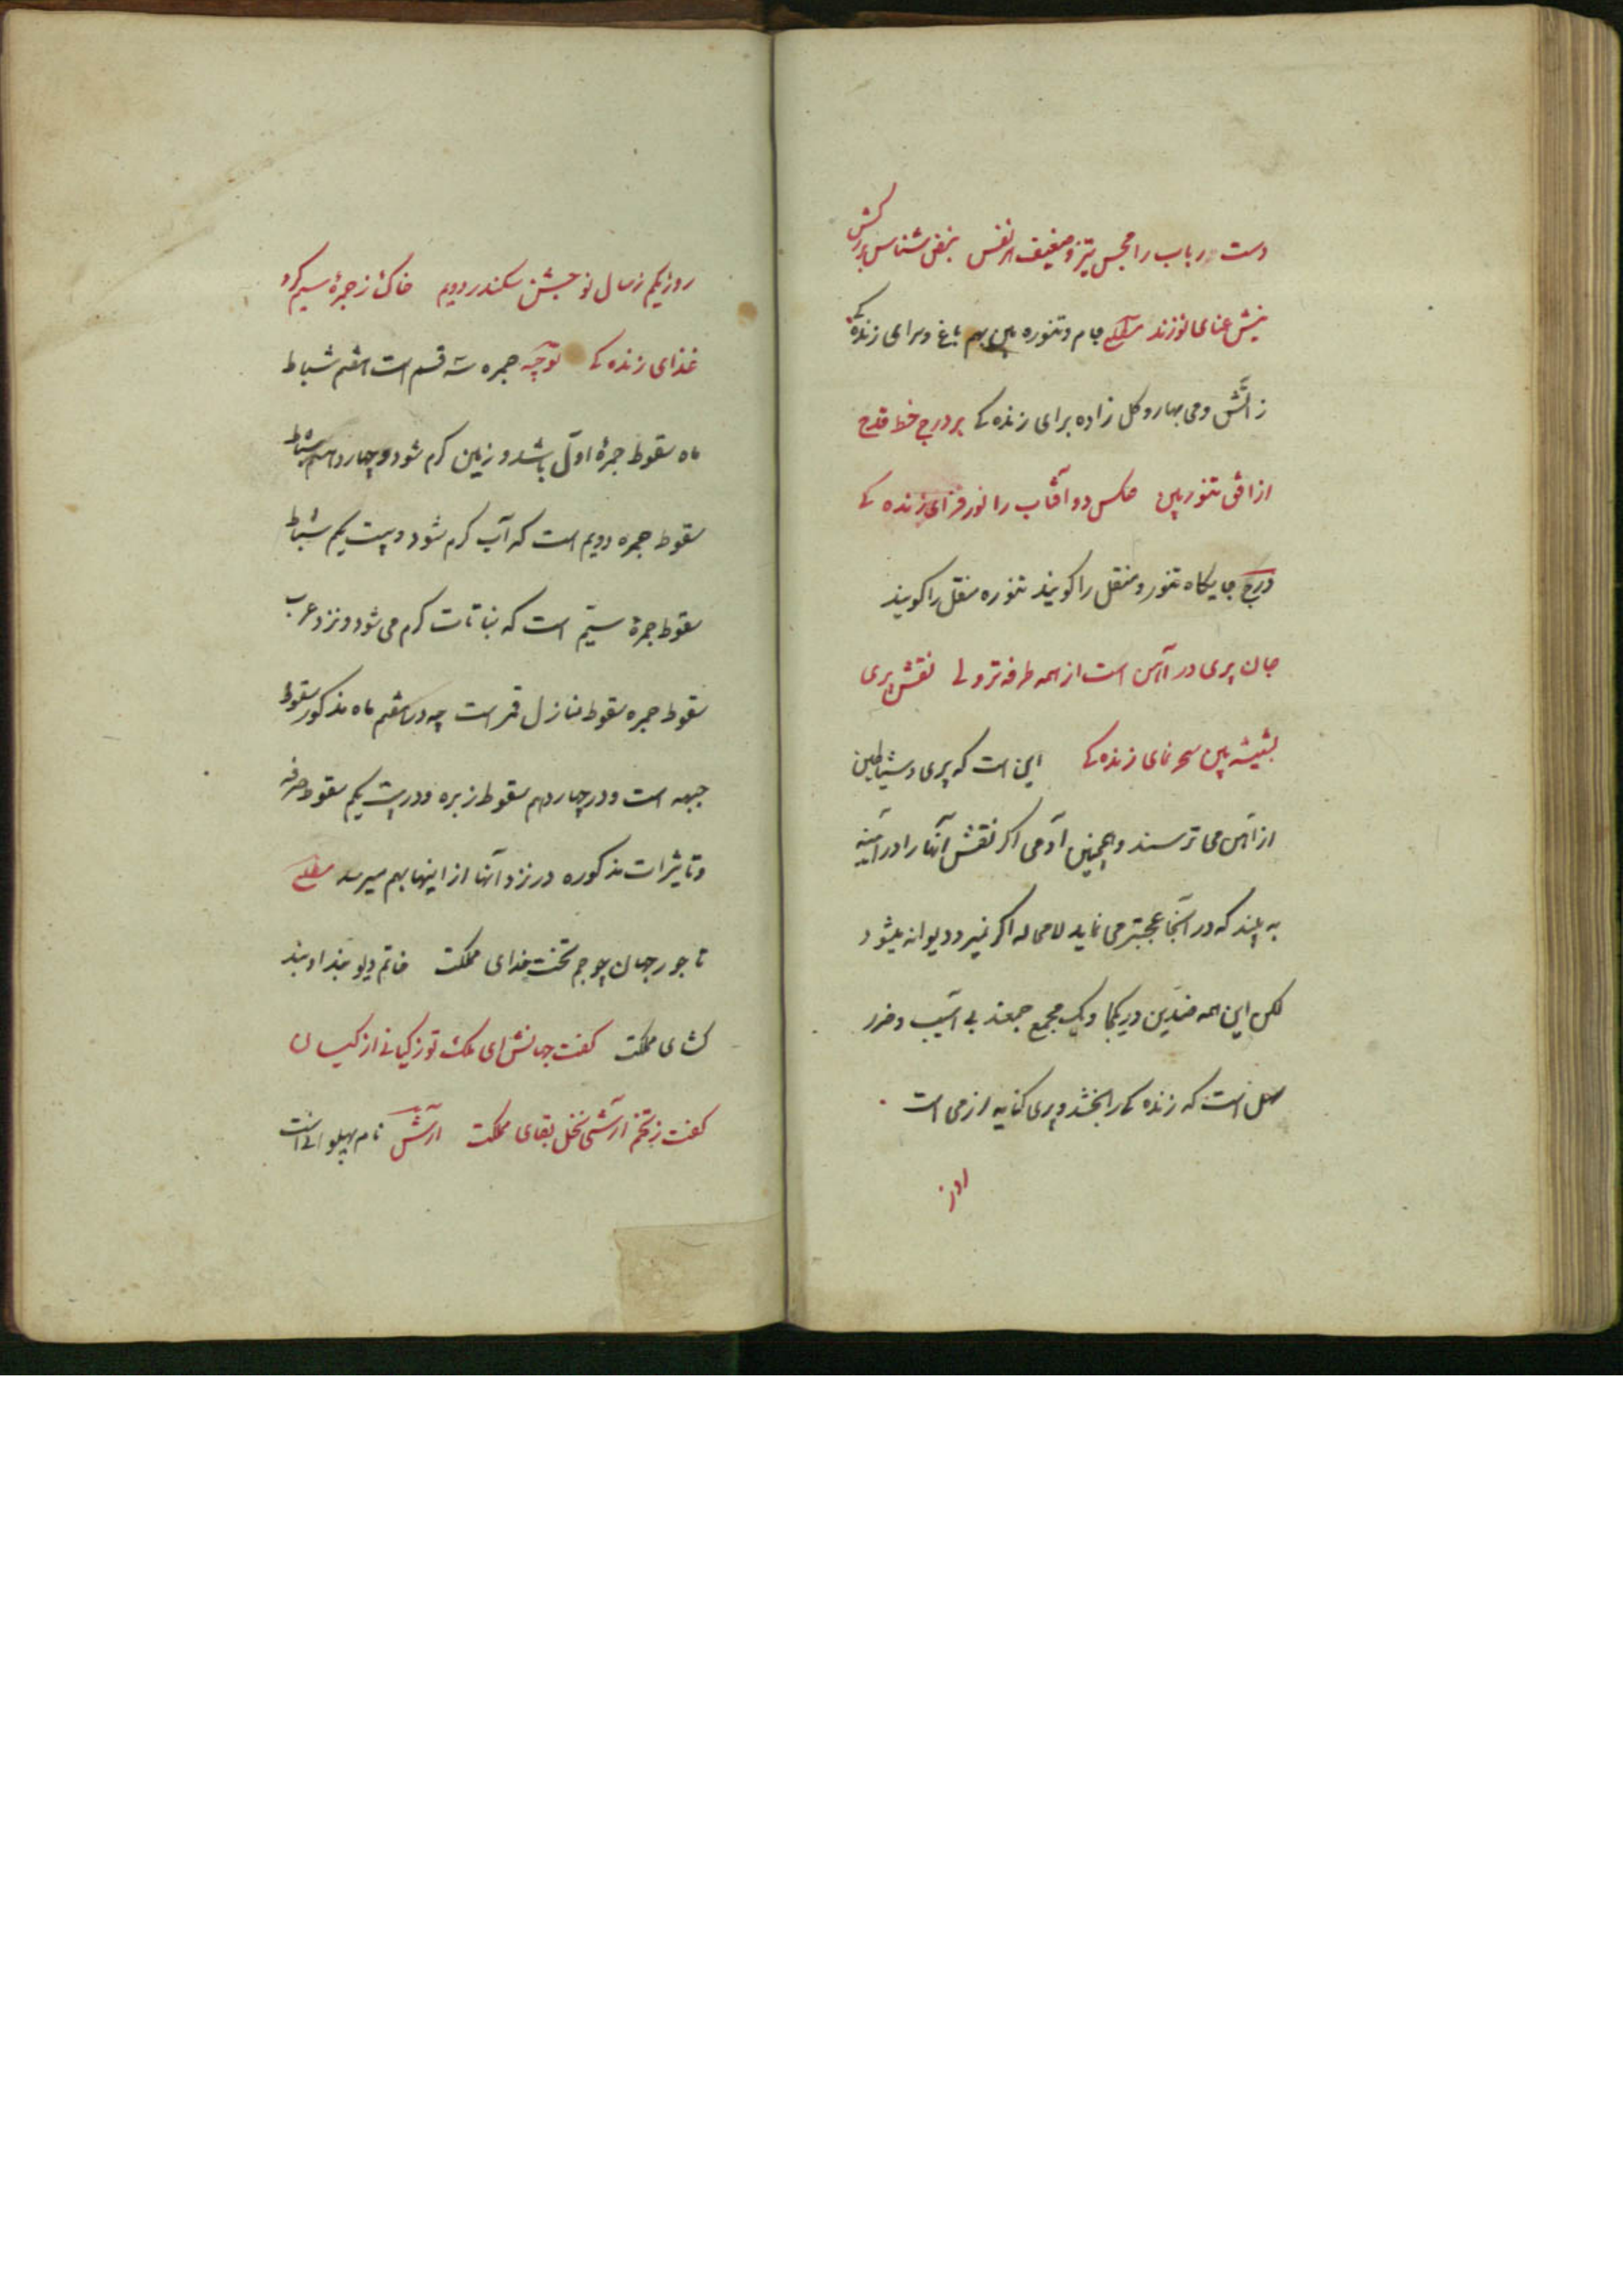 دست رباب را مجس تیز و ضعیف از نفس نبض شناس بر رگش
نیش عنای نو زند مطلع جام و تنوره بین بهم باغ و سرای زندگی
ز آتش و می بهار و گل زاده برای زندگی بر درج خط قدح
از افق تنور بین عکس دو آفتاب را نور فزای زنده گی
درج جایگاه تنور و منقل را گویند تنوره منقل را گویند
جان پری در آهن است از همه طرفه تر ولی نقش پری
بشیشه بین سحر نمای زنده گی این است که پری و شیاطین
از آهن می ترسند و همچنین آدمی اگر نقش آنها را در آینه
به بیند که در آنجا عجبتر می نماید لامحاله اگر نمیرد دیوانه میشود
لکن این همه ضدین در یکجا و یک مجمع جمعند بی آسیب و ضرر
است که زنده گی را بخشد و پری کنایه از می است
روز
روز یکم ز سال نو جشن سکندر دویم خاک ز جمرهٔ سیم کرد
غذای زنده گی توجه جمره سه قسم است هفتم شباط
ماه سقوط جمرهٔ اول باشد و زمین گرم شود و چهاردهم شباط
سقوط جمره دویم است که آب گرم شود و بیست یکم شباط
سقوط جمرهٔ سیم است که نباتات گرم می شود و نزد عرب
سقوط جمره سقوط منازل قمر است چه در هفتم ماه مذکور سقوط
جبهه است و در چهاردهم سقوط زبره و در بیست یکم سقوط صرفه
و تاثیرات مذکوره در نزد آنها از اینها بهم میرسد مطلع
تاجور جهان چو جم تخت خدای مملکت خاتم دیو بند او بند
گشای مملکت گفت جهانش ای ملک تو ز کیانی از کیان
گفت ز تخم آرشی نخل بقای مملکت آرش نام پهلوانی است